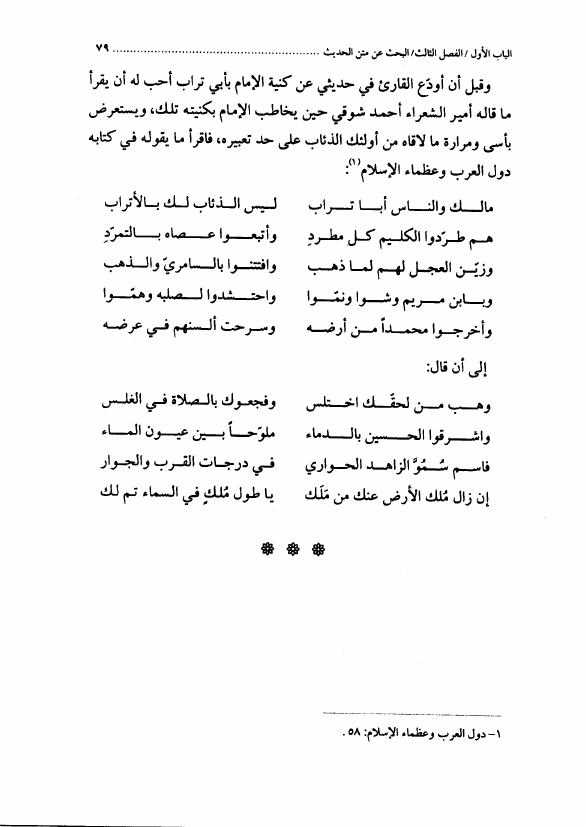 الباب الأول /الفصل الثالث/ البحث عن متن الحديث ........................................................ ٧٩
وقبل أن أودّع القارئ في حديثي عن كنية الإمام بأبي تراب أحب له أن يقرأ
ما قاله أمير الشعراء أحمد شوقي حين يخاطب الإمام بكنيته تلك، ويستعرض
بأسى ومرارة ما لاقاه من أولئك الذئاب على حد تعبيره، فاقرأ ما يقوله في كتابه
دول العرب وعظماء الإسلام(١):
مالـك والنـاس أبـا تـراب ليـس الـذئاب لـك بـالأتراب
هـم طـرّدوا الكليـم كـل مطـردِ وأتبعـوا عـصاه بـالتمرّدِ
وزيّـن العجـل لهـم لمـا ذهـب وافتتنـوا بالـسامريّ والـذهب
وبـابن مريـم وشـوا ونمّـوا واحتـشدوا لـصلبه وهمّـوا
وأخرجـوا محمـداً مـن أرضـه وسرحت ألـسنهم فـي عرضـه
إلى أن قال:
وهـب مـن لحقّـك اختـلس وفجعوك بالـصلاة فـي الغلس
واشـرقوا الحـسين بالـدماء ملوّحـاً بـين عيـون المـاء
فاسـم سُـمُوَّ الزاهـد الحـواري فـي درجـات القـرب والجوار
إن زال مُلك الأرض عنك من مَلَك يا طول مُلكٍ في السماء تم لك
١- دول العرب وعظماء الإسلام: ٥٨ .